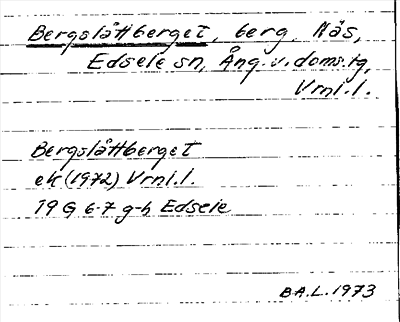 Bergslåttberget, berg, Näs,
Edsele sn, Ång. v. doms. tg,
Vrnl. l.
Bergslåttberget
ek (1972) Vrnl. l.
19 G 6-7 g-h Edsele
B A. L. 1973